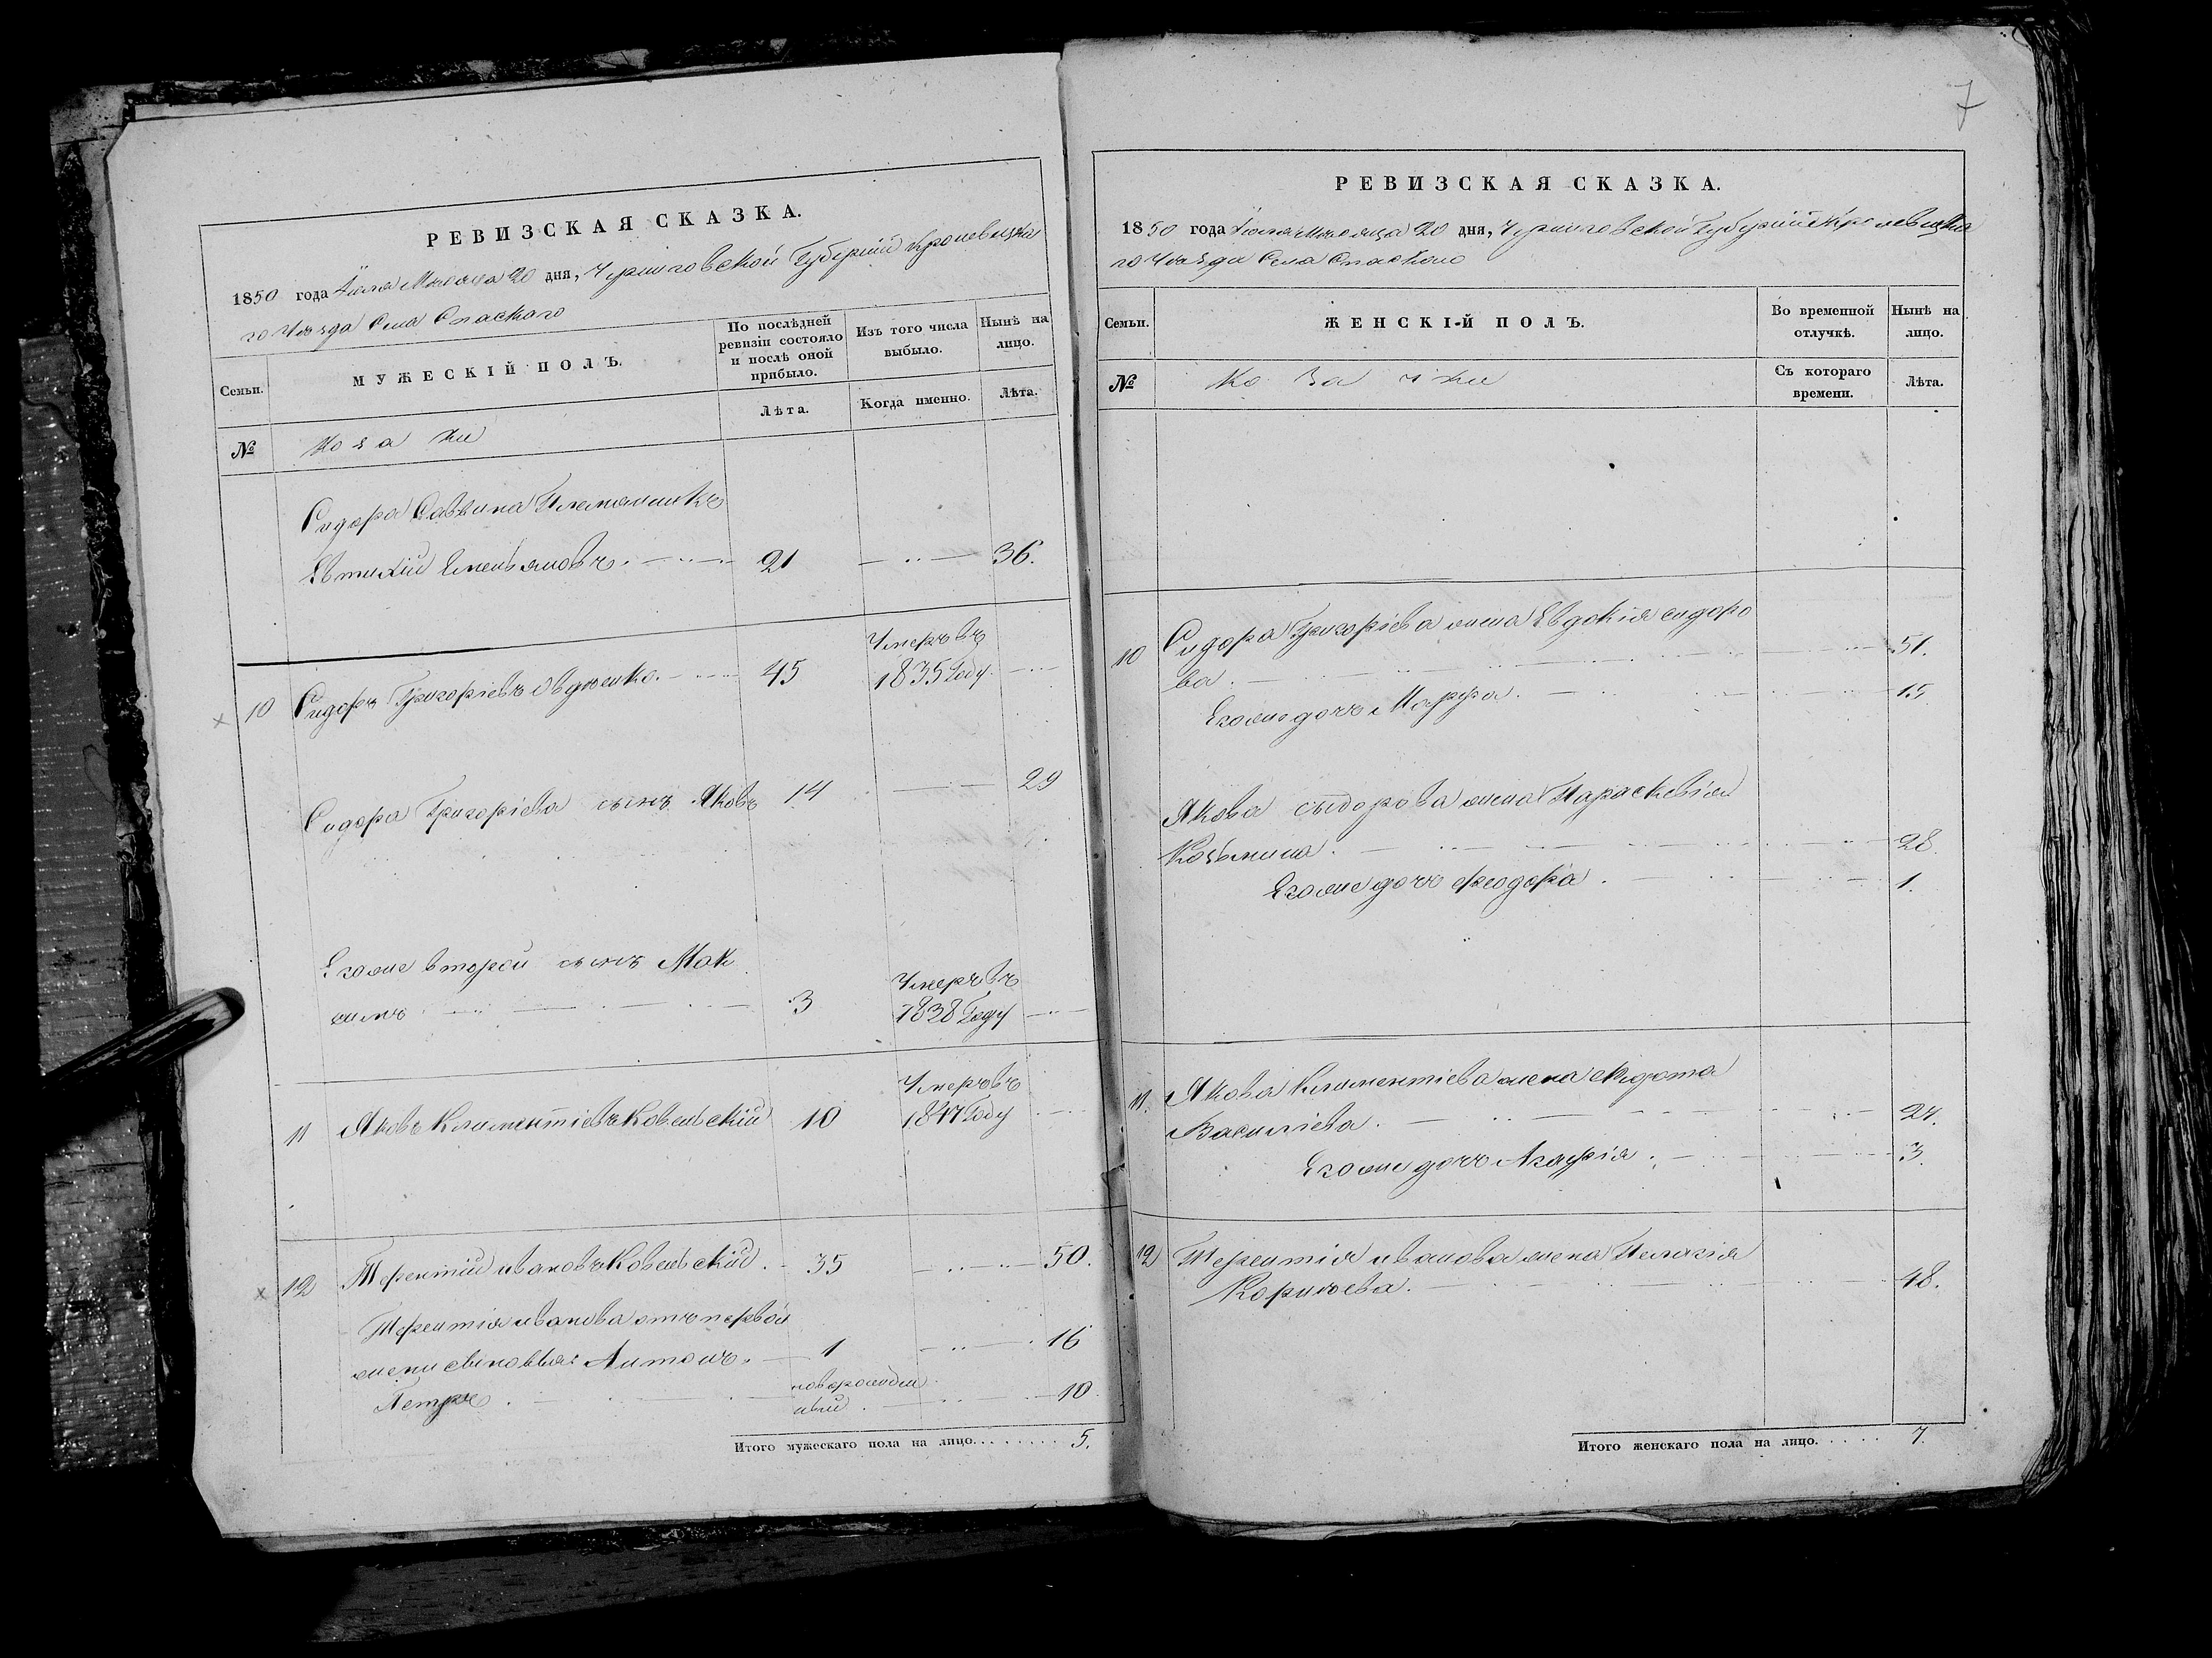 РЕВИЗСКАЯ СКАЗКА.
1850 года Іюля Мѣсяца 20 дня, Черниговской Губерніи Кролевецка
го Уѣзда Села Спаского
Семьи.
МУЖЕСКІЙ ПОЛЪ.
По послѣдней ревизіи состояло и послѣ оной прибыло.
Изъ того числа выбыло.
Нынѣ на лицо.
№
Козаки
Лѣта.
Когда именно.
Лѣта.
Сидора Саввина Племянникъ
Евтихій Емельяновъ. 21 36.
Умеръ въ
10 Сидоръ Григоріевъ Овдѣенко. 45 1835 Году
Сидора Григоріева сынъ Яковъ 14 29
Егоже второй сынъ Мак Умеръ въ
симъ 3 1838 Году
Умеръ въ
11 Яковъ Климентіевъ Ковельскій 10 1847 Году
12 Терентій Ивановъ Ковельскій. 35 50.
Терентія Иванова отъ первой
жены сыновья: Антонъ. 1 16
Петръ новорожден
ный 10
Итого мужескаго пола на лицо........ 5.
7
РЕВИЗСКАЯ СКАЗКА.
1850 года Іюля Мѣсяца 20 дня, Черниговской Губерніи Кролевецка
го Уѣзда Села Спаского
Семьи.
ЖЕНСКІ-Й ПОЛЪ.
Во временной отлучкѣ.
Нынѣ на лицо.
№
Козачки
Съ котораго времени.
Лѣта.
10 Сидора Григоріева жена Евдокія сидоро
ва. 51.
Егоже дочь Марфа. 15
Якова сыдорова жена Параскевія
Козьмина. 28
Егоже дочь Феодора. 1.
11. Якова Климентіева жена
Василіева. 24.
Егоже дочь Агафія. 3.
12 Терентія иванова жена Пелагія
Корнѣева. 48.
Итого женскаго пола на лицо..... 7.